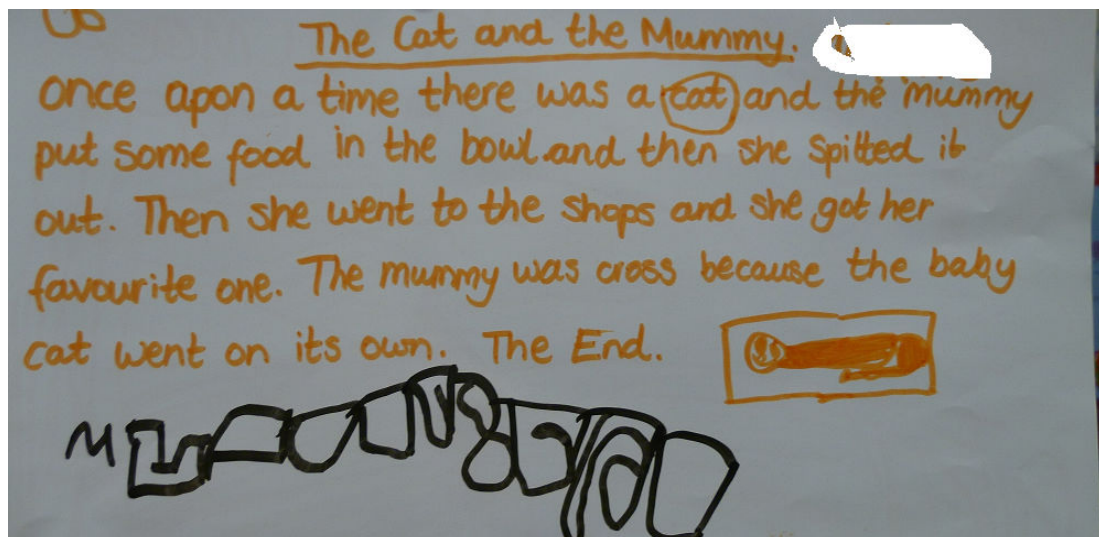 The Cat and the Mummy.
once apon a time there was a cat and the mummy
put some food in the bowl and then she spitted it
out. Then she went to the shops and she got her
favourite one. The mummy was cross because the baby
cat went on its own. The End.